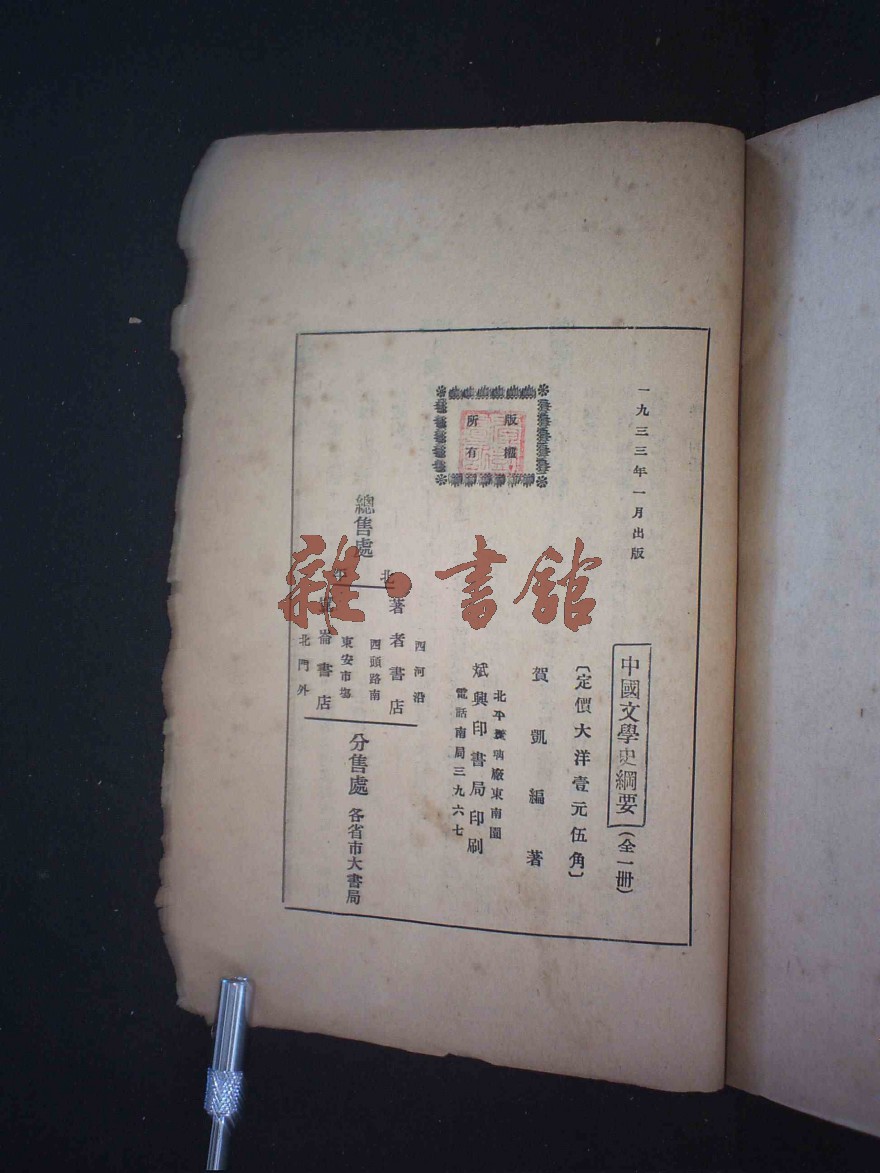 一九三三年一月出版
中國文學史綱要(全一册)
〔定價大洋壹元伍角〕
賀凱編著
版權
所有
北平琉璃廠東南園
斌興印書局印刷
電話南局三九六七
總售處
北平
西河沿
著者書店
西頭路南
東安市塲
崙書店
北門外
分售處 各省市大書局
雜·書館